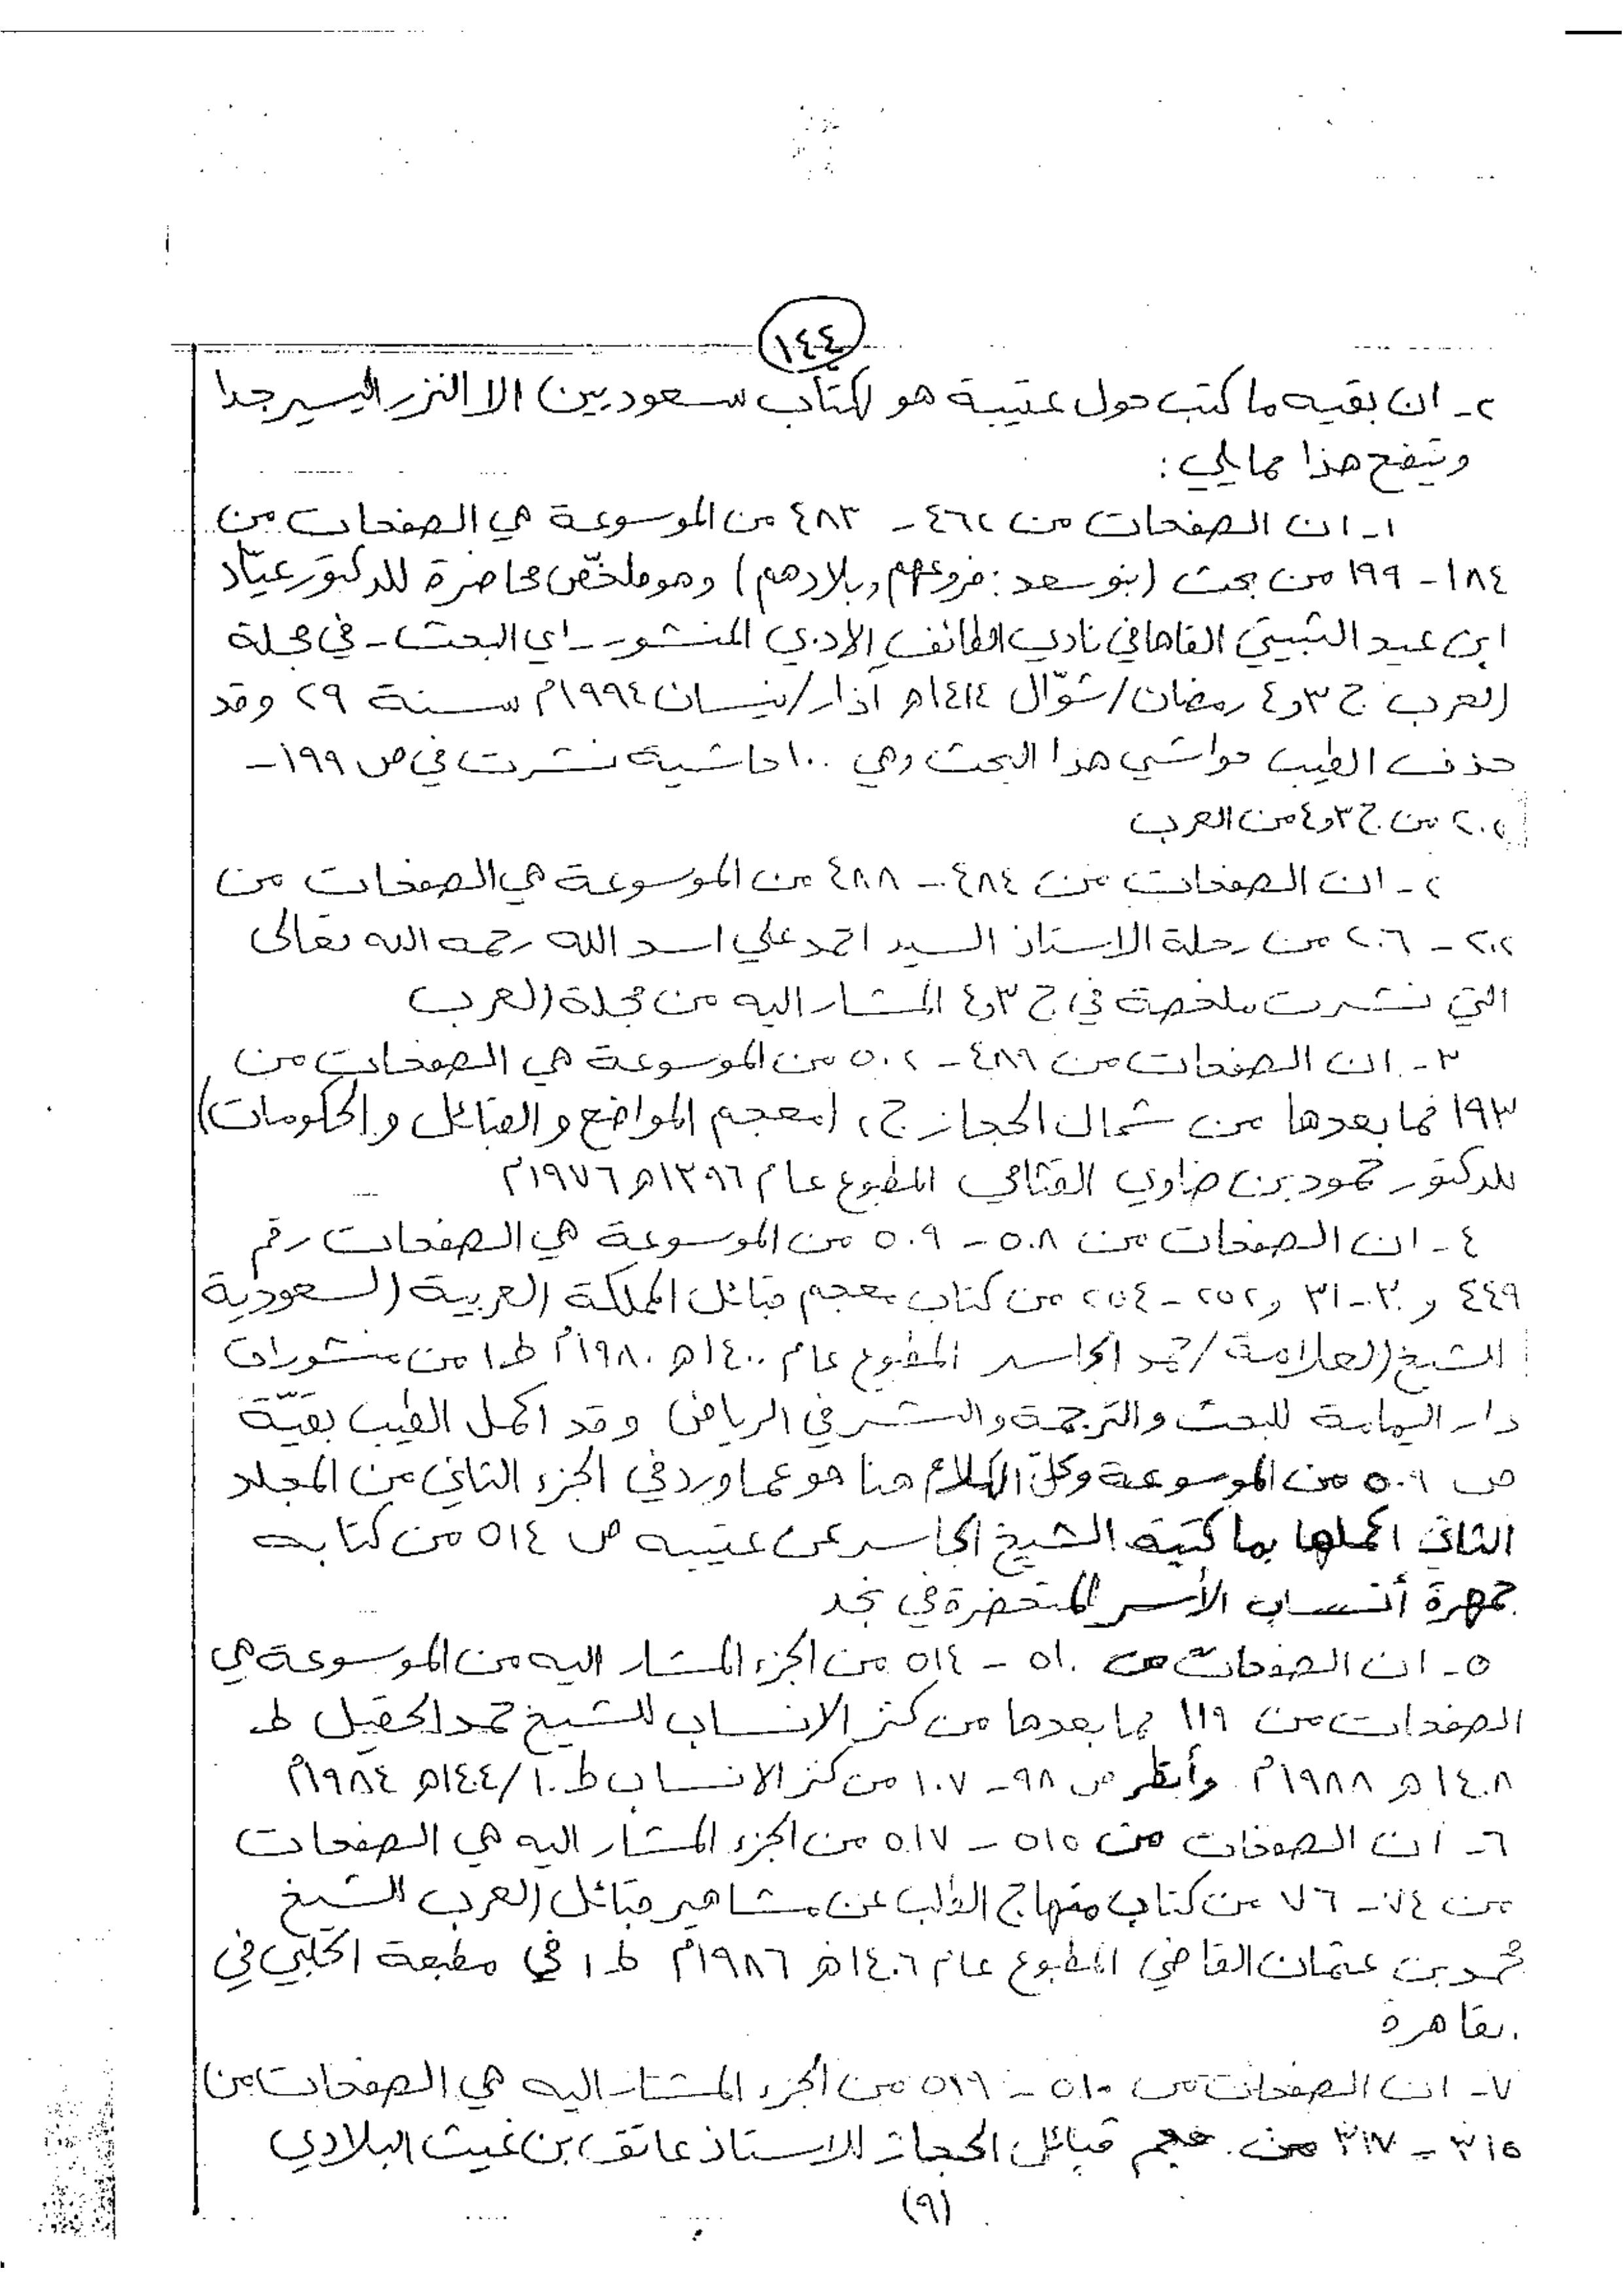 ١٤٤
٢- ان بقيه ما كتب حول عتيبة هو لكتاب سعوديين الا النزر اليسير جدا
ويتضح هذا مما يلي :
١- ان الصفحات من ٤٦٢ - ٤٨٣ من الموسوعة هي الصفحات من
١٨٤ - ١٩٩ من بحث (بنو سعد : فروعهم وبلادهم) وهو ملخّص محاضرة للدكتور عيّاد
ابن عيد الثبيتي القاها في نادي الطائف الادبي المنشور - اي البحث - في مجلة
العرب ج ٣ و٤ رمضان/شوّال ١٤١٤هـ آذار/نيسان ١٩٩٤م سنة ٢٩ وقد
حذف الطيب حواشي هذا البحث وهي ١٠٠ حاشية نشرت في ص ١٩٩ -
من ج ٣ و٤ من العرب
٢- ان الصفحات من ٤٨٤ - ٤٨٨ من الموسوعة هي الصفحات من
٢٠٢ - ٢٠٦ من رحلة الاستاذ السيد احمد علي اسد الله رحمه الله تعالى
التي نشرت ملخصة في ج ٣ و٤ المشار اليه من مجلة العرب
٣- ان الصفحات من ٤٨٩ - ٥٠٢ من الموسوعة هي الصفحات من
١٩٣ فما بعدها من شمال الحجاز ج١ (معجم المواضع والقبائل والحكومات)
للدكتور حمود بن ضاوي القثامي المطبوع عام ١٣٩٦هـ ١٩٧٦م
٤- ان الصفحات من ٥٠٨ - ٥٠٩ من الموسوعة هي الصفحات رقم
٤٤٩ و ٣٠ - ٣١ و ٢٥٢ - ٢٥٤ من كتاب معجم قبائل المملكة العربية السعودية
الشيخ العلامة / حمد الجاسر المطبوع عام ١٤٠٠هـ ١٩٨٠م ط١ من منشورات
دار اليمامة للبحث والترجمة والنشر في الرياض وقد اكمل الطيب بقيّة
ص ٥٠٩ من الموسوعة وكلّ الكلام هنا هو عما ورد في الجزء الثاني من المجلد
الثاني اكملها بما كتبه الشيخ الجاسر عن عتيبه ص ٥١٤ من كتابه
جمهرة أنساب الأسر المتحضرة في نجد
٥- ان الصفحات من ٥١٠ - ٥١٤ من الجزء المشار اليه من الموسوعة هي
الصفحات من ١١٩ فما بعدها من كنز الانساب للشيخ حمد الحقيل ط
١٤٠٨هـ ١٩٨٨م وأنظر ص ٩٨ - ١٠٧ من كنز الانساب ط ١٠/١٤٠٤هـ ١٩٨٤م
٦- ان الصفحات من ٥١٥ - ٥١٧ من الجزء المشار اليه هي الصفحات
من ٧٤ - ٧٦ من كتاب منهاج الطلب عن مشاهير قبائل العرب الشيخ
محمد بن عثمان القاضي المطبوع عام ١٤٠٦هـ ١٩٨٦م ط١ في مطبعة الحلبي في
القاهرة
٧- ان الصفحات من - ٥١٩ من الجزء المشار اليه هي الصفحات من
٣١٥ - ٣١٧ من معجم قبائل الحجاز للاستاذ عاتق بن غيث البلادي
(٩)